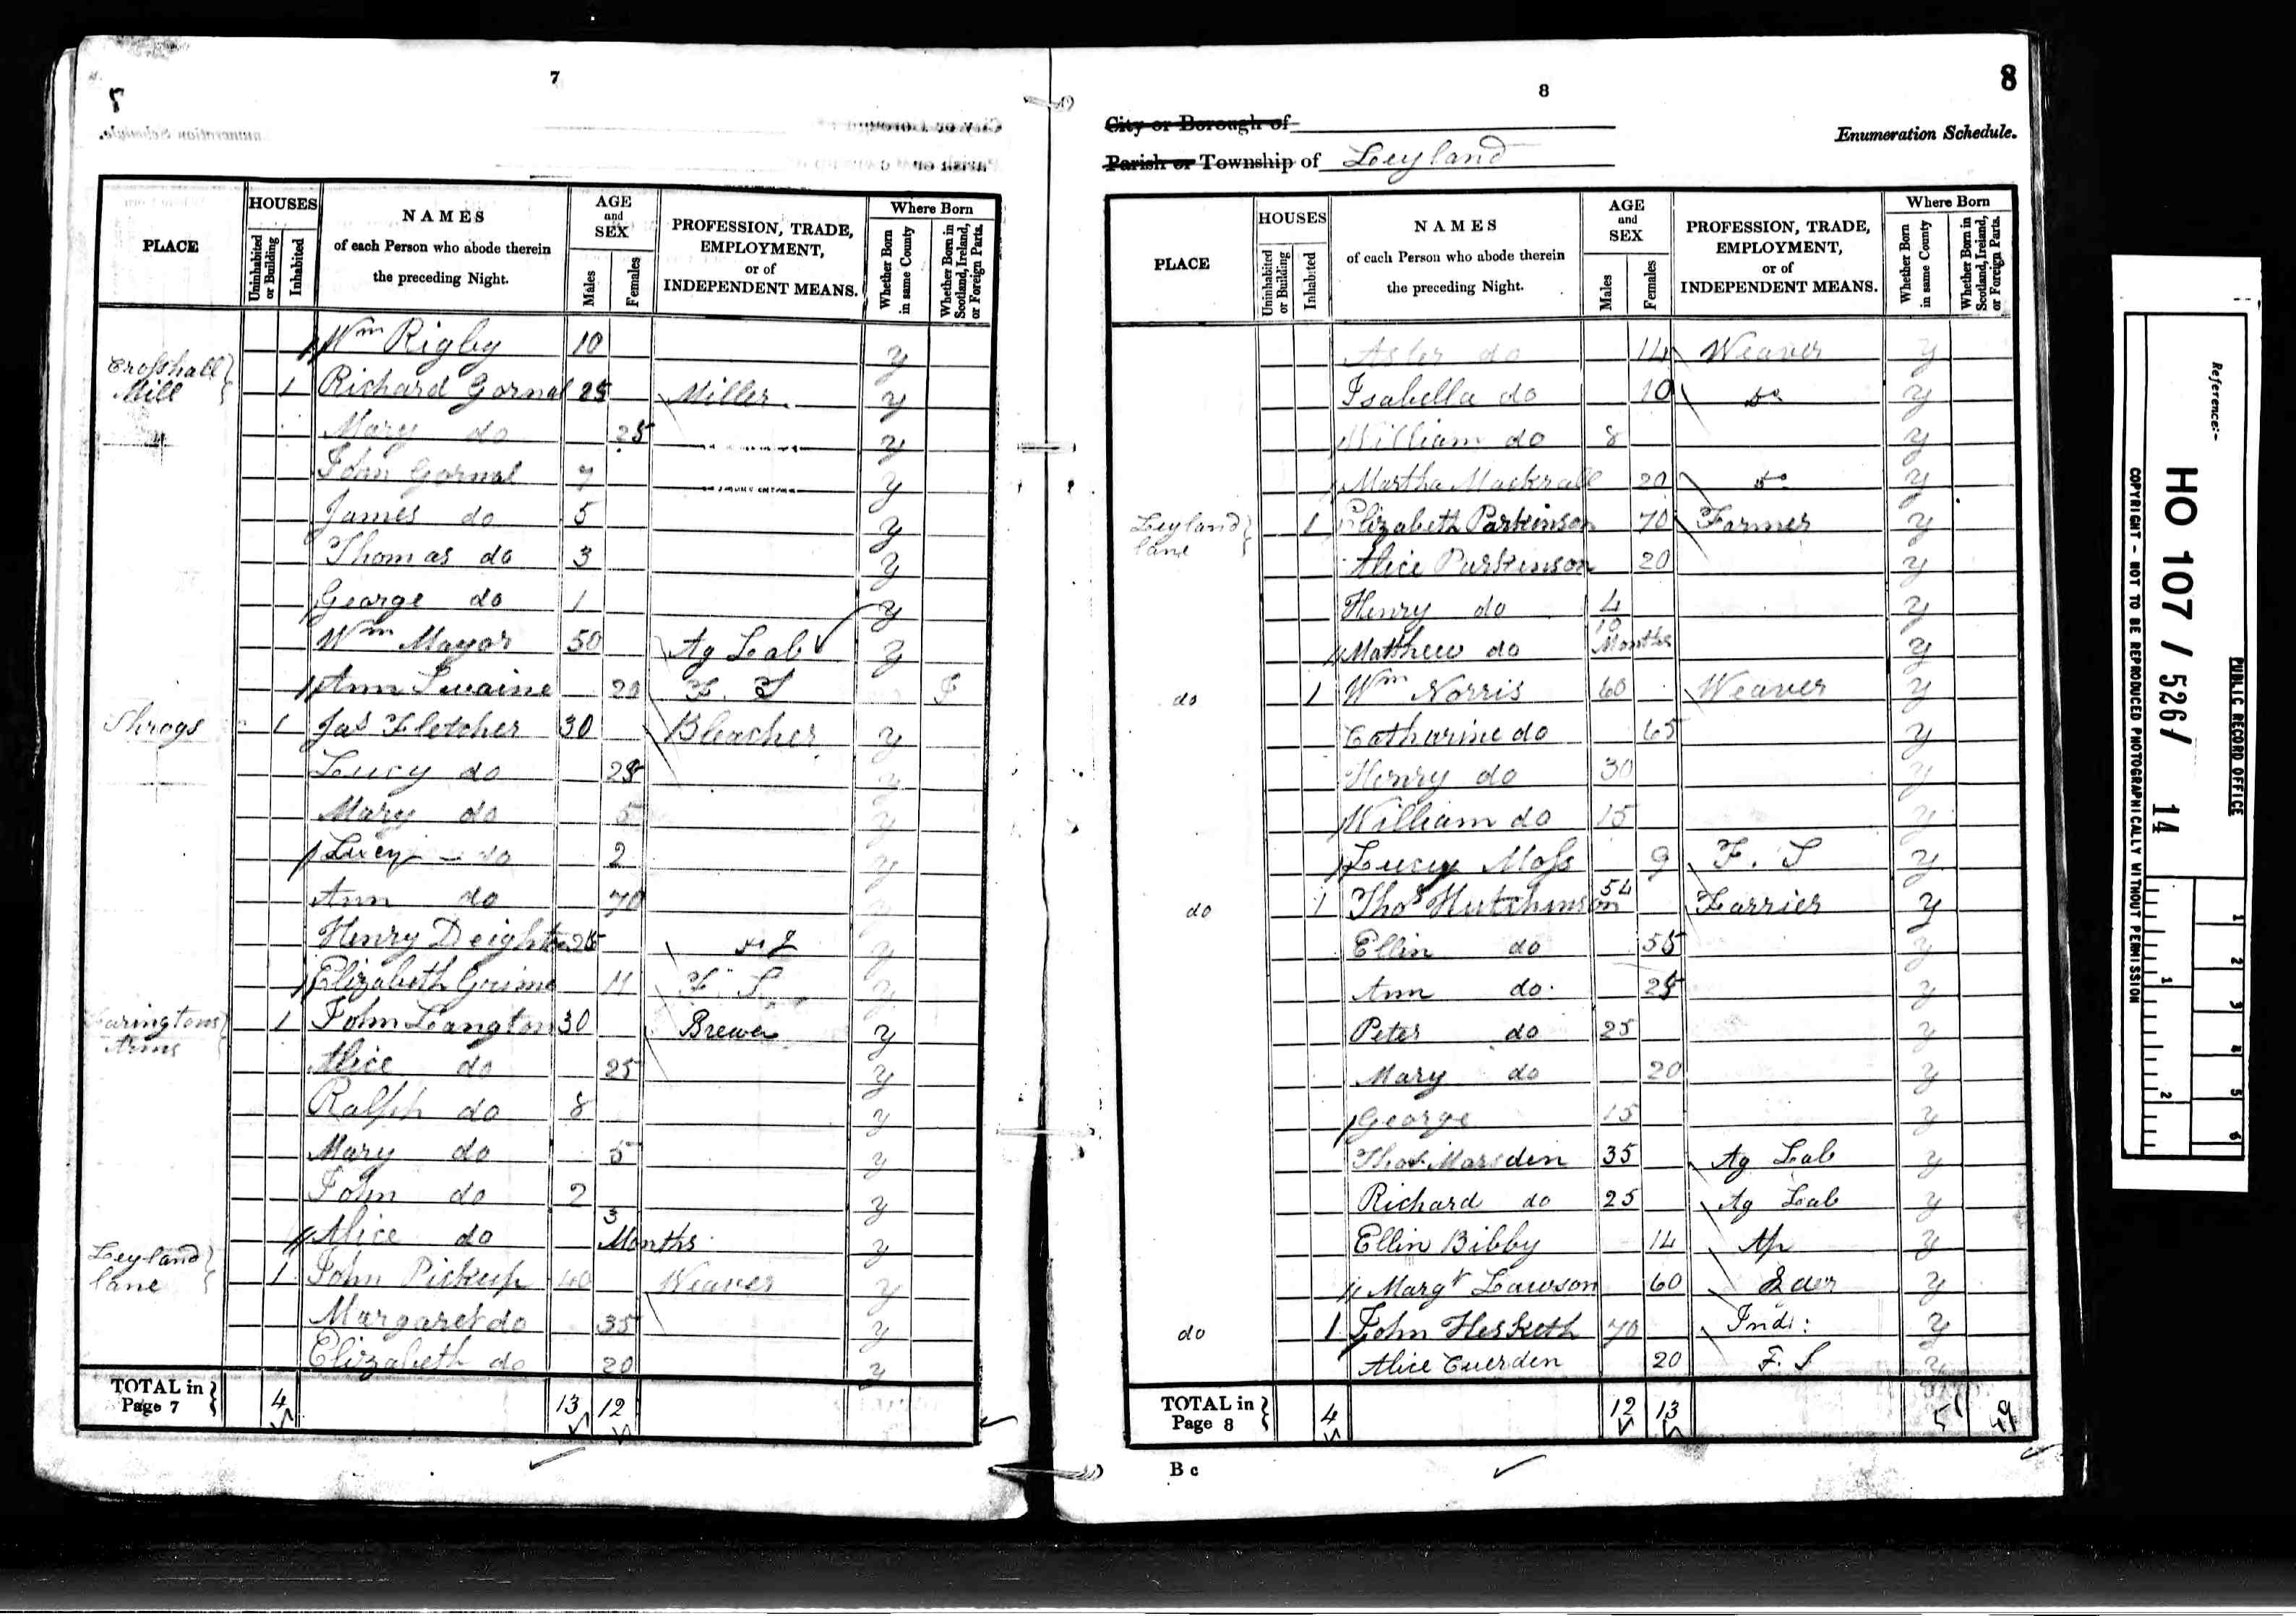 7
PLACE
HOUSES
Uninhabited or Building
Inhabited
NAMES
of each Person who abode therein
the preceding Night.
AGE
and
SEX
Males
Females
PROFESSION, TRADE,
EMPLOYMENT,
or of
INDEPENDENT MEANS.
Where Born
Whether Born in same County
Whether Born in Scotland, Ireland, or Foreign Parts.
Wm Rigby 10 y
Crosshall Mill 1 Richard Gornal 25 Miller y
Mary do 25 y
John Gornal 7 y
James do 5 y
Thomas do 3 y
George do 1 y
Wm Mayor 50 Ag Lab y
Ann Swaine 20 F. S I
Shrogs 1 Jas Fletcher 30 Bleacher y
Lucy do 25 y
Mary do 5 y
Lucy do 2 y
Ann do 70 y
Henry Deighton 25 y
Elizabeth Grime 11 F. S. y
Faringtons Arms 1 John Langton 30 Brewer y
Alice do 25 y
Ralph do 8 y
Mary do 5 y
John do 2 y
Alice do 3 Months y
Leyland lane 1 John Pickup 40 Weaver y
Margaret do 35 y
Elizabeth do 20 y
TOTAL in Page 7 4 13 12
8
8
City or Borough of
Enumeration Schedule.
Parish or Township of Leyland
PLACE
HOUSES
Uninhabited or Building
Inhabited
NAMES
of each Person who abode therein
the preceding Night.
AGE
and
SEX
Males
Females
PROFESSION, TRADE,
EMPLOYMENT,
or of
INDEPENDENT MEANS.
Where Born
Whether Born in same County
Whether Born in Scotland, Ireland, or Foreign Parts.
do 14 Weaver y
Isabella do 10 do y
William do 8 y
Martha Mackrall 20 do y
Leyland lane 1 Elizabeth Parkinson 70 Farmer y
Alice Parkinson 20 y
Henry do 4 y
Matthew do 10 Months y
do 1 Wm Norris 60 Weaver y
Catharine do 65 y
Henry do 30 y
William do 15 y
Lucy Moss 9 F. S y
do 1 Thos Hutchinson 54 Farrier y
Ellin do 55 y
Ann do 25 y
Peter do 25 y
Mary do 20 y
George 15 y
Thos Marsden 35 Ag Lab y
Richard do 25 Ag Lab y
Ellin Bibby 14 Ap y
Margt Lawson 60 y
do 1 John Hesketh 70 Ind: y
Alice Cuerden 20 F. S y
TOTAL in Page 8 4 12 13
B c
Reference:-
HO 107 / 526 / 14
PUBLIC RECORD OFFICE
COPYRIGHT - NOT TO BE REPRODUCED PHOTOGRAPHICALLY WITHOUT PERMISSION
1 2 3 4 5 6
1 2